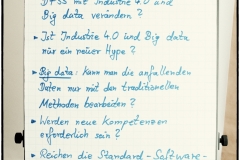 DFSS mit Industrie 4.0 und
Big data verändern?
► Ist Industrie 4.0 und Big data
nur ein neuer Hype?
► Big data: Kann man die anfallenden
Daten nur mit den traditionellen
Methoden bearbeiten?
► Werden neue Kompetenzen
erforderlich sein?
► Reichen die Standard-Software-